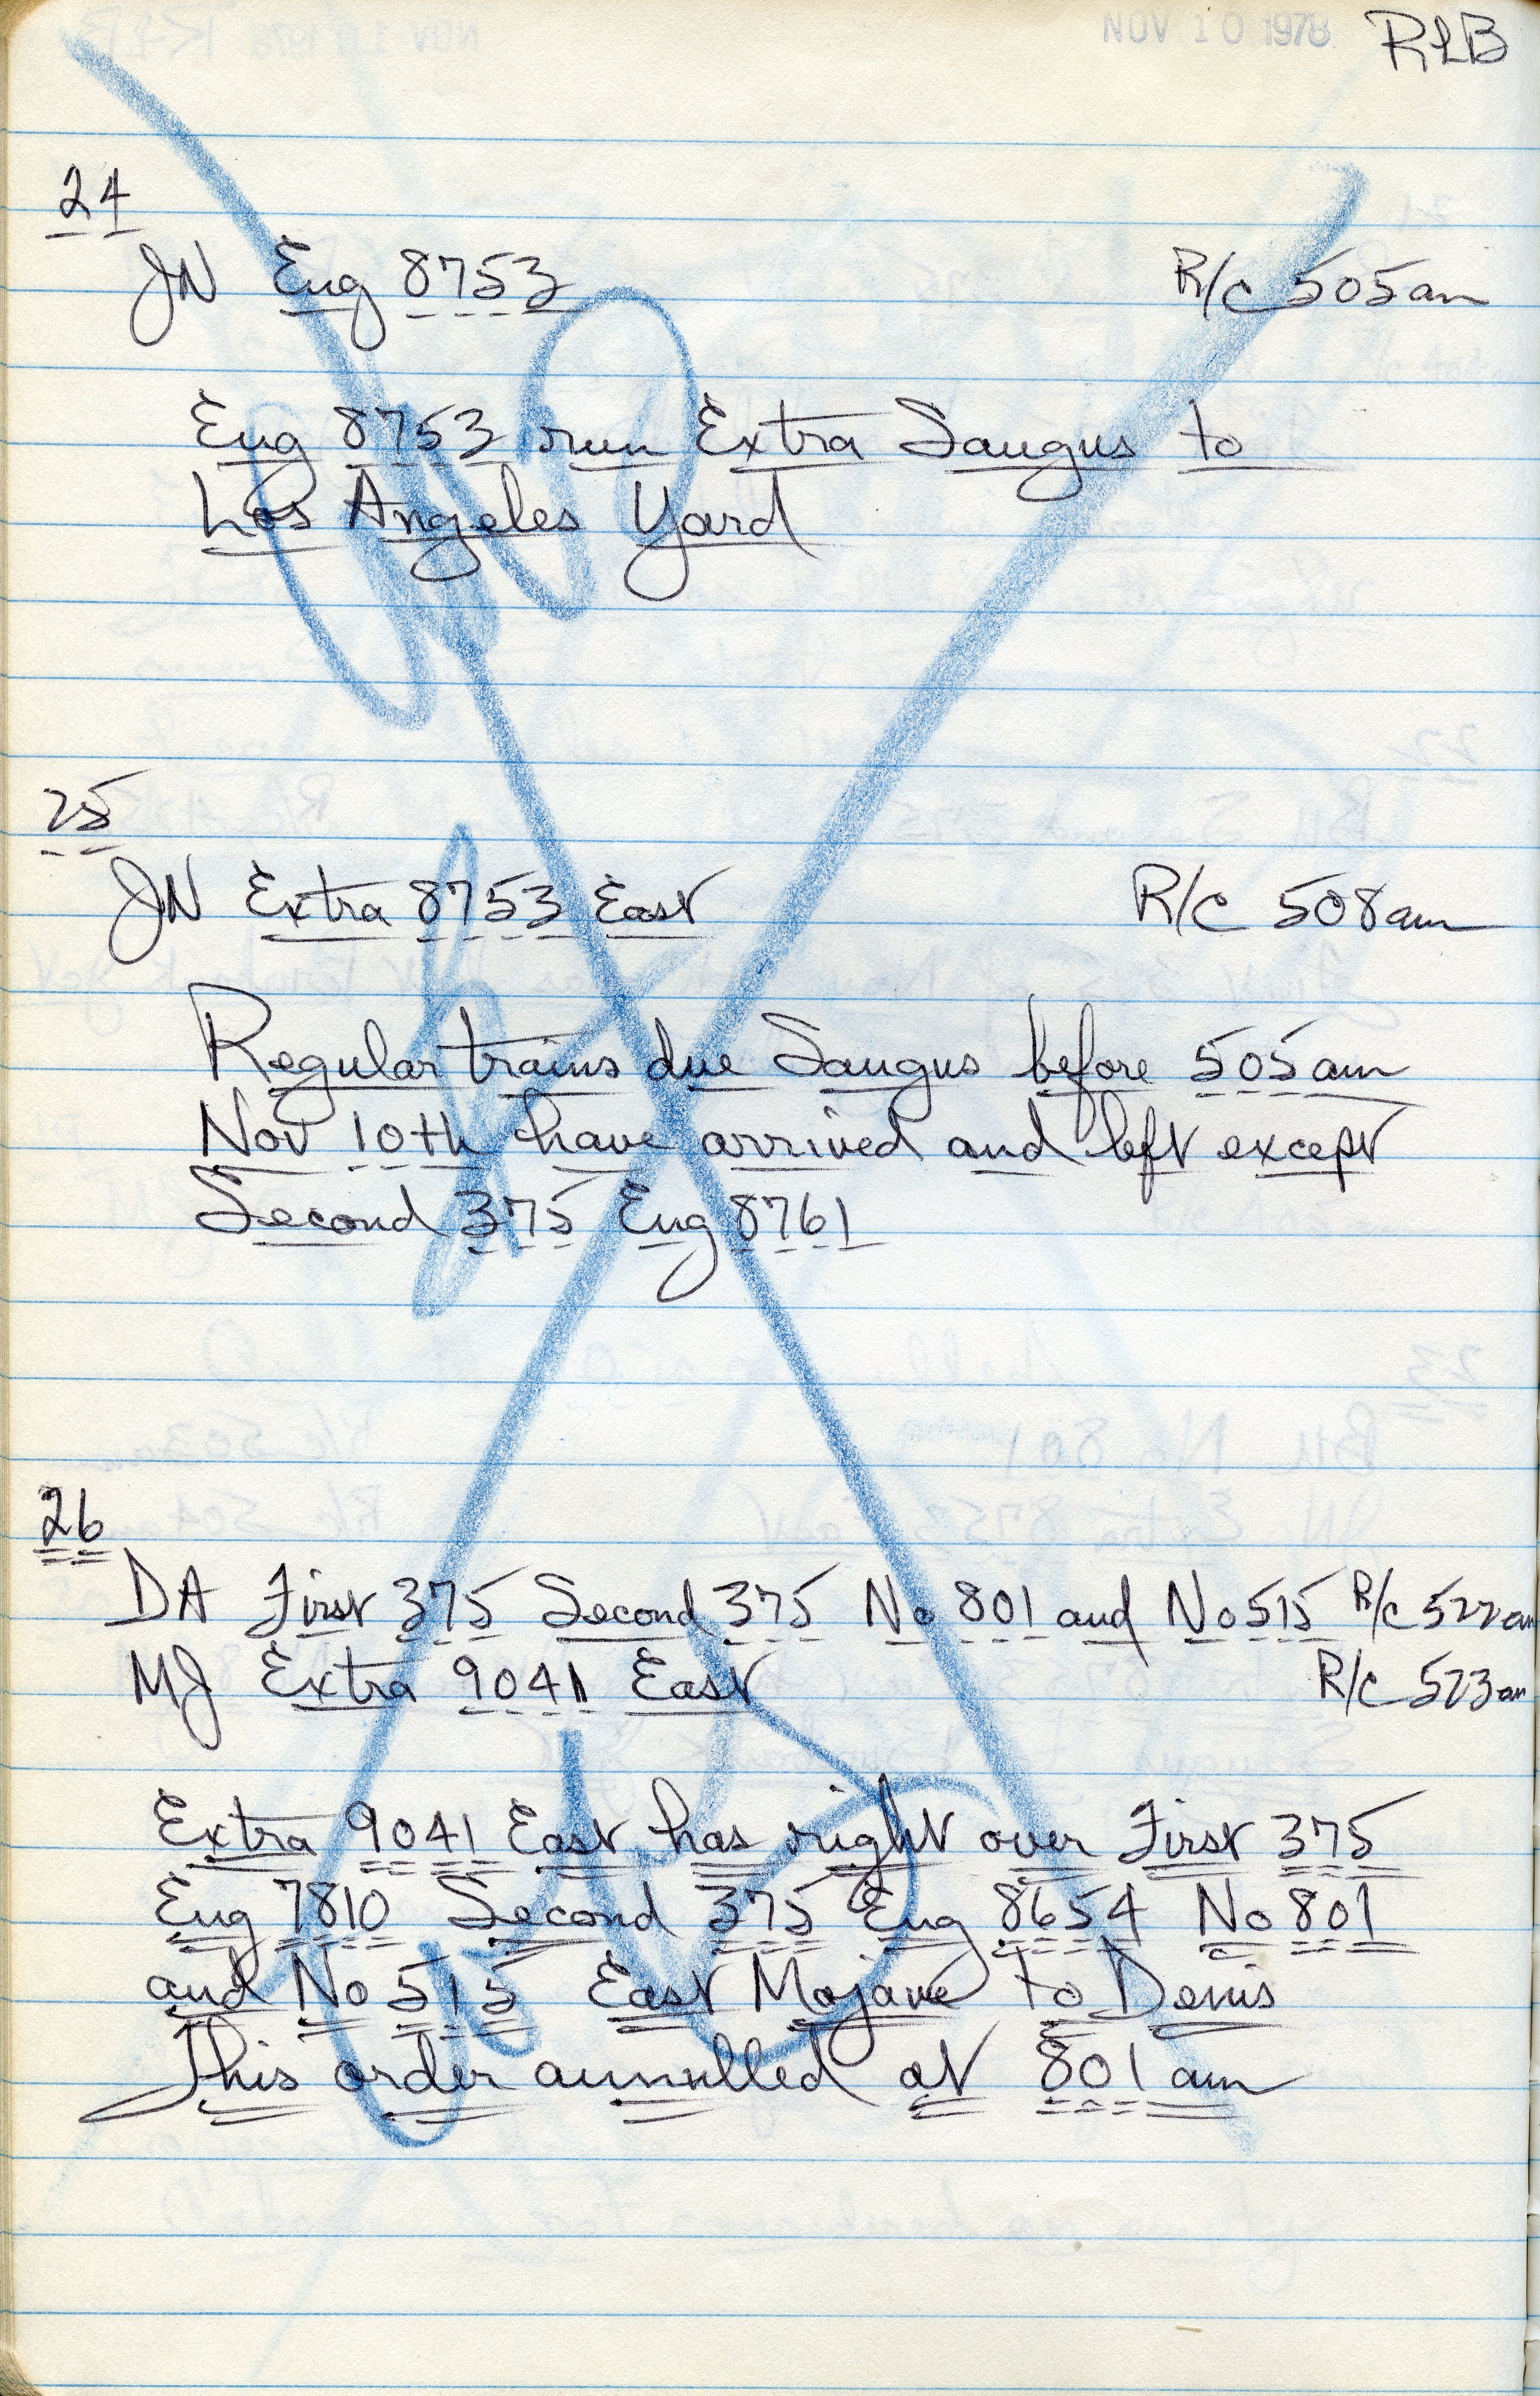 NOV 10 1978 RLB
24
JN Eng 8753 R/c 505am
Eng 8753 run Extra Saugus to
Los Angeles Yard
25
JN Extra 8753 East R/c 508am
Regular trains due Saugus before 505am
Nov 10th have arrived and left except
Second 375 Eng 8761
26
DA First 375 Second 375 No 801 and No 515 R/c 522am
MJ Extra 9041 East R/c 523am
Extra 9041 East has right over First 375
Eng 7810 Second 375 Eng 8654 No 801
and No 515 East Mojave to Denis
This order annulled at 801am